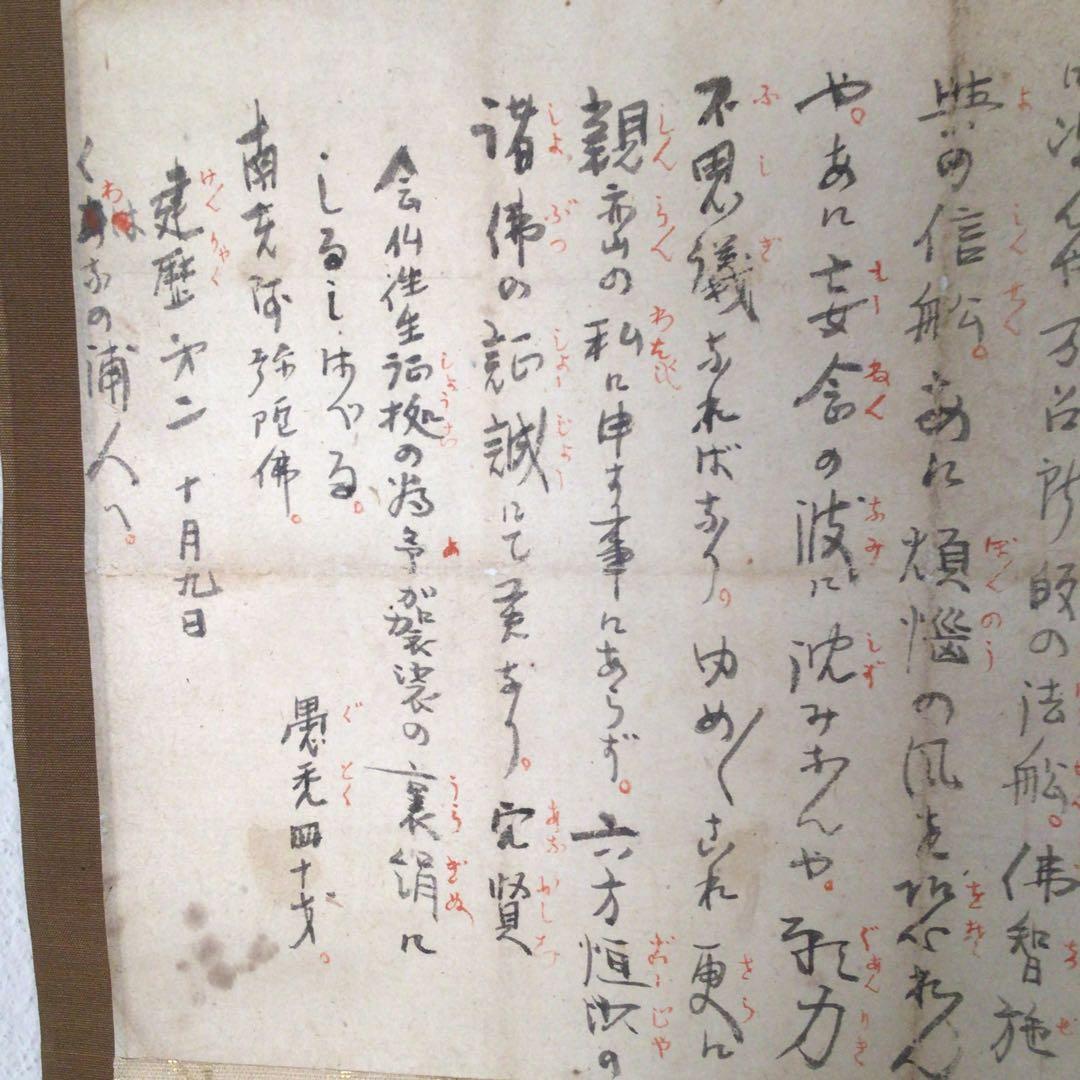 沈んや万台所の法船。佛智施
與の信船。あに煩悩の風を恐れん
や。あに妄念の波に沈みなんや。願力
不思議なればなり。ゆめ〱これ更に
親鸞の私に申す事にあらず。六方恒沙の
諸佛の証誠にて候なり。穴賢
会仏往生証拠の為予袈裟の裏絹に
しるしはべる。
南无阿弥陀佛。
愚禿四十才。
建歴第二 十月九日
くわなの浦人へ。